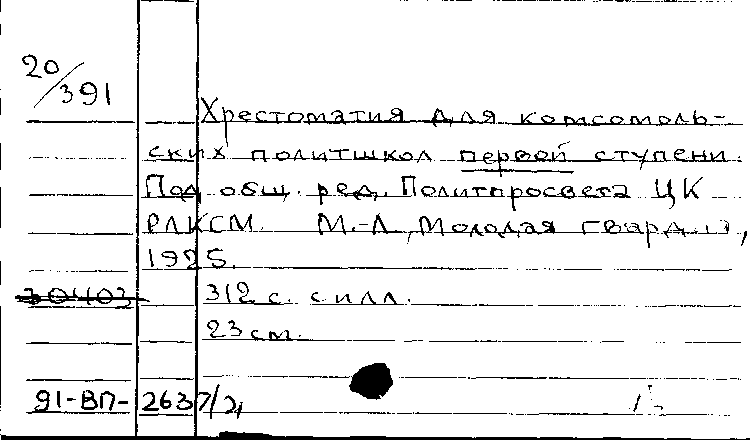 20/391
Хрестоматия для комсомоль-
ских политшкол первой ступени.
Под общ. ред. Политпросвета ЦК
РЛКСМ. М.-Л., Молодая гвардия,
1925.
30403 312 с. с илл.
23 см.
91-ВП-2637/2